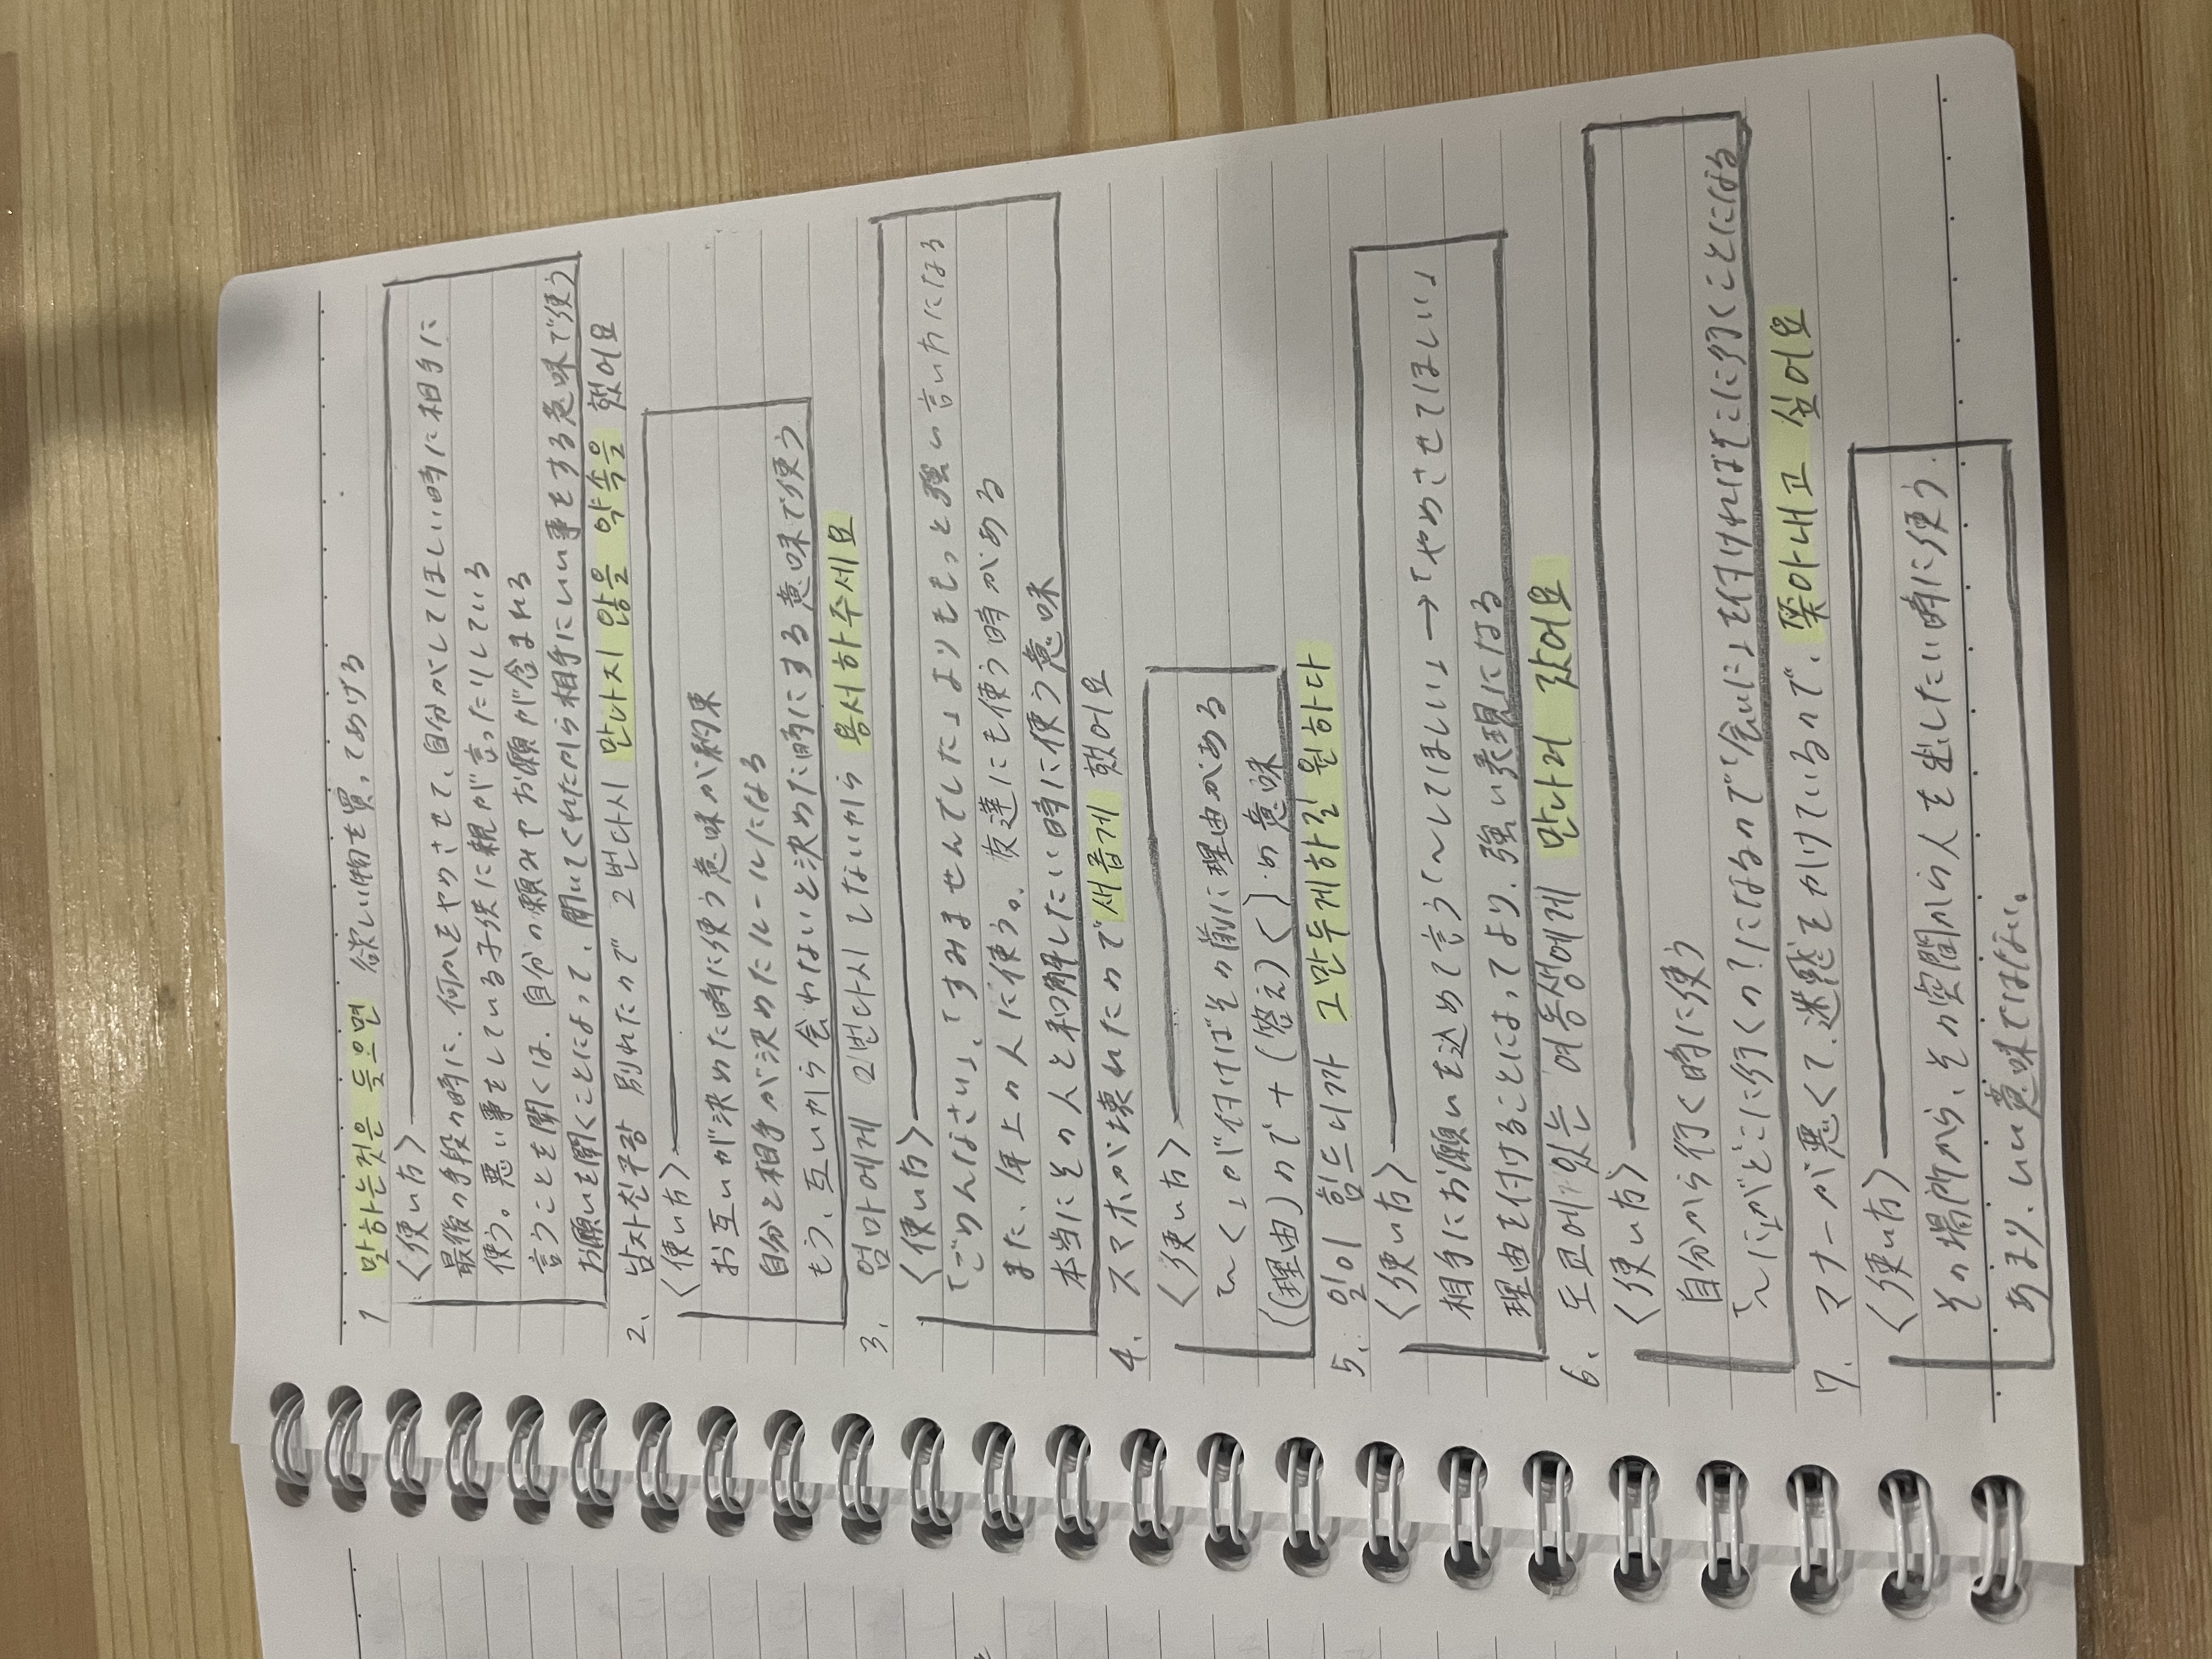 1 말하는것은 들으면 欲しい物を買ってあげる
〈使い方〉
最後の手段の時に、何かをやめさせて、自分がしてほしい時に相手に
使う。悪い事をしている子供に親が言ったりしている
言うことを聞くは、自分の願みやお願が含まれる
お願いを聞くことによって、聞いてくれたから相手にいい事をする意味で使う
2. 남자친구랑 別れたので 2번다시 만나지 않을 약속을 했어요
〈使い方〉
お互いが決めた時に使う意味が約束
自分と相手が決めたルールになる
もう、互いから会わないと決めた時にする意味で使う
3. 엄마에게 2번다시 しないから 용서하주세요
〈使い方〉
「ごめんなさい」、「すみませんでした」よりももっと強い言い方になる
また、年上の人に使う。友達にも使う時がある
本当にその人と和解したい時に使う意味
4. スマホが壊れたので 새롭게 했어요
〈使い方〉
「〜く」が付けばその前に理由がある
((理由)ので+(答え)く)の意味
5. 일이 힘드니까 그만두게하길 원하다
〈使い方〉
相手にお願いを込めて言う「〜してほしい」→「やめさせてほしい」
理由を付けることによってより、強い表現になる
6. 도쿄에 있는 여동생에게 만나러 갔어요
〈使い方〉
自分から行く時に使う
「〜に」がどこに行くの?になるので「会いに」を付ければそこに行くことになる
7. マナーが悪くて、迷惑をかけているので、쫓아내고 싶어요
〈使い方〉
その場所から、その空間から人を出したい時に使う.
あまり、いい意味ではない。